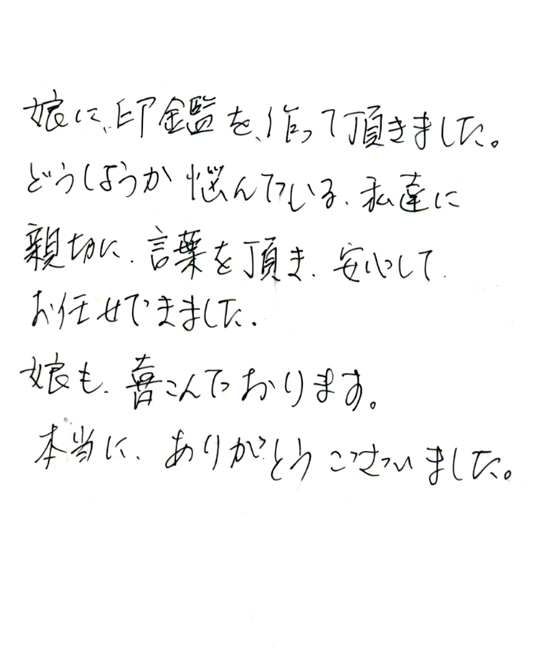 娘に、印鑑を、作って頂きました。
どうしようか 悩んでいる、私達に
親切に、言葉を頂き、安心して
お任せできました。
娘も、喜こんでおります。
本当に、ありがとうございました。